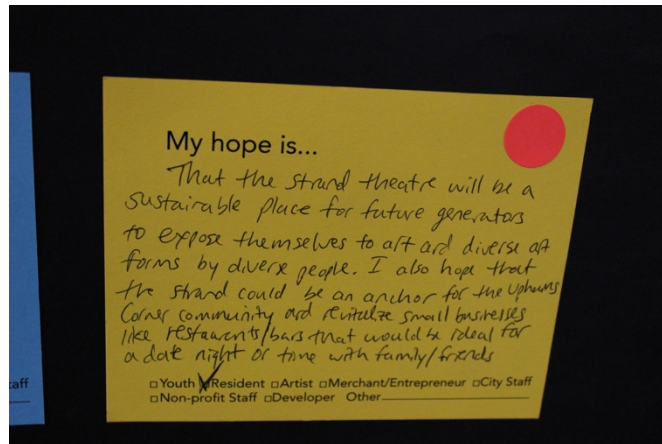 My hope is...
That the strand theatre will be a
sustainable place for future generators
to expose themselves to art and diverse art
forms by diverse people. I also hope that
the strand could be an anchor for the Uphams
Corner community and revitalize small businesses
like restaurants/bars that would be ideal for
a date night or time with family/friends
□Youth □Resident □Artist □Merchant/Entrepreneur □City Staff
□Non-profit Staff □Developer Other